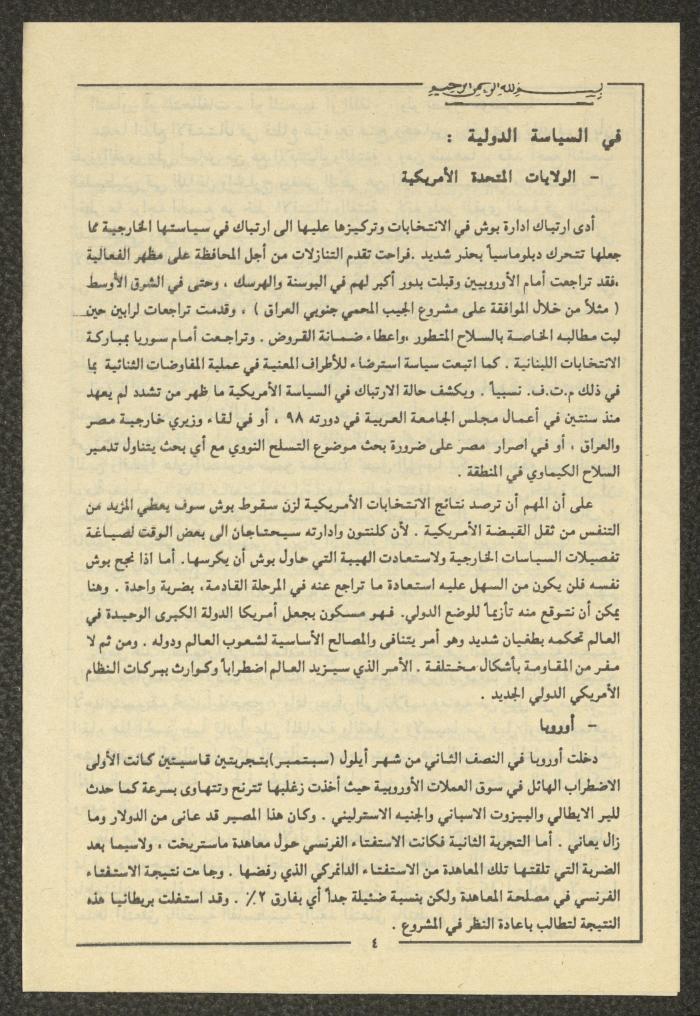 بسم الله الرحمن الرحيم
في السياسة الدولية :
- الولايات المتحدة الأمريكية
أدى ارتباك ادارة بوش في الانتخابات وتركيزها عليها الى ارتباك في سياستها الخارجية مما
جعلها تتحرك دبلوماسياً بحذر شديد .فراحت تقدم التنازلات من أجل المحافظة على مظهر الفعالية
،فقد تراجعت أمام الأوروبيين وقبلت بدور أكبر لهم في البوسنة والهرسك ، وحتى في الشرق الأوسط
( مثلاً من خلال الموافقة على مشروع الجيب المحمي جنوبي العراق ) ، وقدمت تراجعات لرابين حين
لبت مطالبه الخاصة بالسلاح المتطور ،واعطاء ضمانة القروض . وتراجعت أمام سوريا بمباركة
الانتخابات اللبنانية . كما اتبعت سياسة استرضاء للأطراف المعنية في عملية المفاوضات الثنائية بما
في ذلك م.ت.ف. نسبياً . ويكشف حالة الارتباك في السياسة الأمريكية ما ظهر من تشدد لم يعهد
منذ سنتين في أعمال مجلس الجامعة العربية في دورته ٩٨ ، أو في لقاء وزيري خارجية مصر
والعراق ، أو في اصرار مصر على ضرورة بحث موضوع التسلح النووي مع أي بحث يتناول تدمير
السلاح الكيماوي في المنطقة .
على أن المهم أن ترصد نتائج الانتخابات الأمريكية لزن سقوط بوش سوف يعطي المزيد من
التنفس من ثقل القبضة الأمريكية . لأن كلنتون وادارته سيحتاجان الى بعض الوقت لصياغة
تفصيلات السياسات الخارجية ولاستعادت الهيبة التي حاول بوش أن يكرسها. أما اذا نجح بوش
نفسه فلن يكون من السهل عليه استعادة ما تراجع عنه في المرحلة القادمة، بضربة واحدة . وهنا
يمكن أن نتوقع منه تأزيماً للوضع الدولي. فهو مسكون بجعل أمريكا الدولة الكبرى الوحيدة في
العالم تحكمه بطغيان شديد وهو أمر يتنافى والمصالح الأساسية لشعوب العالم ودوله . ومن ثم لا
مفر من المقاومة بأشكال مختلفة . الأمر الذي سيزيد العالم اضطراباً وكوارث ببركات النظام
الأمريكي الدولي الجديد .
- أوروبا
دخلت أوروبا في النصف الثاني من شهر أيلول (سبتمبر)بتجربتين قاسيتين كانت الأولى
الاضطراب الهائل في سوق العملات الأوروبية حيث أخذت زغلبها تترنح وتتهاوى بسرعة كما حدث
للير الايطالي والبيزوت الاسباني والجنيه الاسترليني . وكان هذا المصير قد عانى من الدولار وما
زال يعاني . أما التجربة الثانية فكانت الاستفتاء الفرنسي حول معاهدة ماستريخت ، ولاسيما بعد
الضربة التي تلقتها تلك المعاهدة من الاستفتاء الدانمركي الذي رفضها . وجاءت نتيجة الاستفتاء
الفرنسي في مصلحة المعاهدة ولكن بنسبة ضئيلة جداً أي بفارق ٢٪ . وقد استغلت بريطانيا هذه
النتيجة لتطالب باعادة النظر في المشروع .
٤